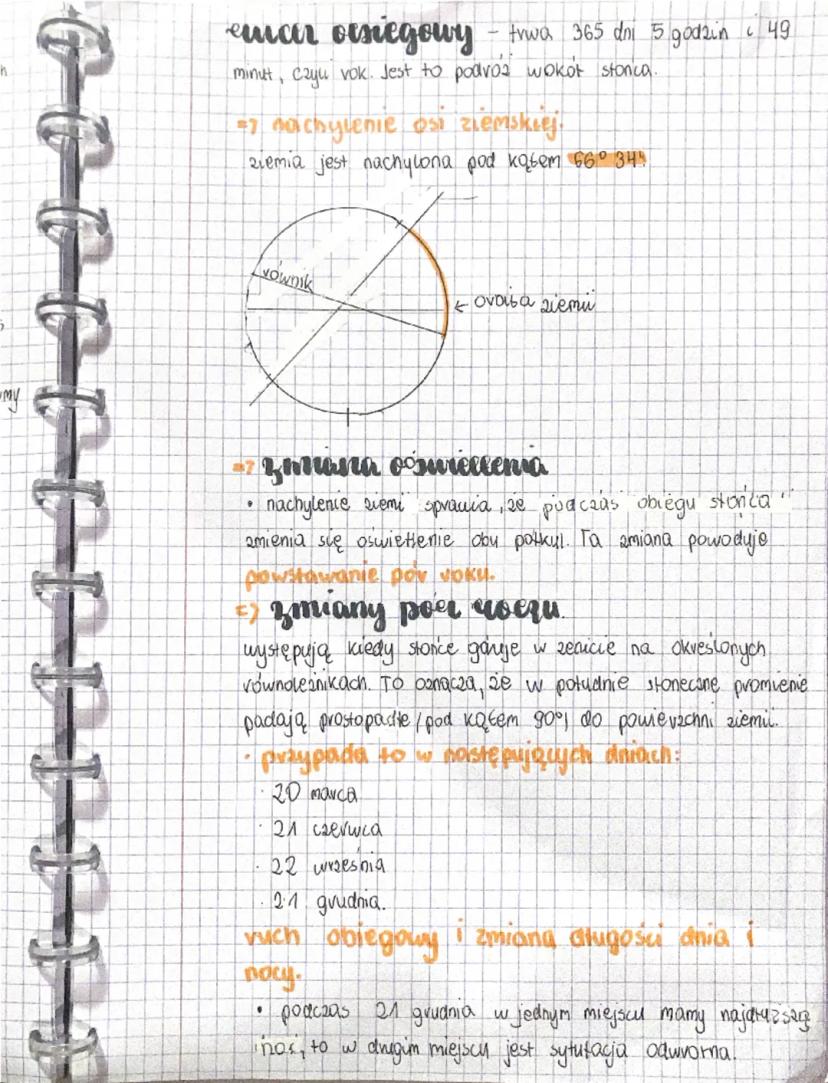 obiegowy - trwa 365 dni 5 godzin i 49
minut, czyli rok. Jest to podróż wokół słońca.
=> nachylenie osi ziemskiej.
ziemia jest nachylona pod kątem 66° 34'
równik
← orbita ziemii
=> zmiana oświetlenia
• nachylenie ziemi sprawia, że podczas obiegu słońca
zmienia się oświetlenie obu półkul. Ta zmiana powoduje
powstawanie pór roku.
=> zmiany pór roku.
występują kiedy słońce góruje w zenicie na określonych
równoleżnikach. To oznacza, że w południe słoneczne promienie
padają prostopadle /pod kątem 90°/ do powierzchni ziemii.
· przypada to w następujących dniach:
· 20 marca
· 21 czerwca
· 22 września
· 21 grudnia.
ruch obiegowy i zmiana długości dnia i
nocy.
• podczas 21 grudnia w jednym miejscu mamy najdłuższą
noc, to w drugim miejscu jest sytutacja odwrorna.
my